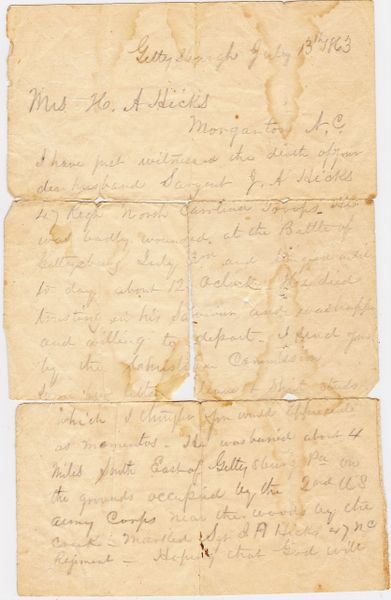 Gettysburgh July 13th 1863
Mrs H. A Hicks
Morganton N. C.
I have just witnessed the death of your
dear husband Sargent J. A Hicks
47 Regt North Carolina Troops. He
was badly wounded at the Battle of
Gettysburg July 3rd and lingered until
to day about 12 Oclock. He died
trusting in his Saviour and was happy
and willing to depart. I send you
by the Christian Commission
letter Shirt studs
which I thought you would appreciate
as mementos. He was buried about 4
Miles South East of Gettysburg Pa on
the grounds occupied by the 2nd U.S
Army Corps near the woods by the
Creek - Marked Sgt J A Hicks 47 NC
Regiment - Hoping that God will